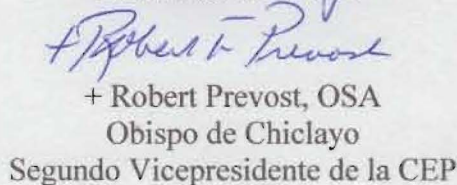 + Robert F Prevost
+ Robert Prevost, OSA
Obispo de Chiclayo
Segundo Vicepresidente de la CEP